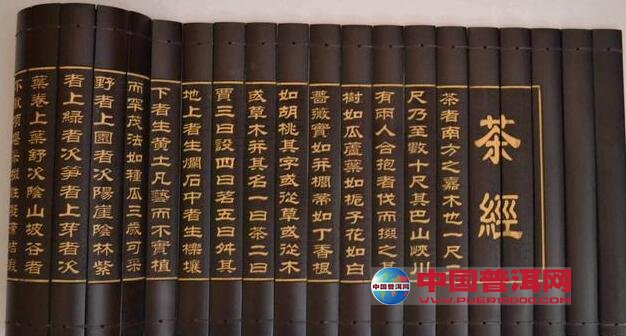 茶經
茶者南方之嘉木也一尺
尺乃至數十尺其巴山峽川
有兩人合抱者伐而掇之其
樹如瓜蘆葉如梔子花如白
薔薇實如并櫚蒂如丁香根
如胡桃其字或從草或從木
或草木并其名一曰茶二曰
賈三曰設四曰茗五曰舛其
地上者生爛石中者生櫟壤
下者生黃土凡藝而不實植
而罕茂法如種瓜三歲可采
野者上園者次陽崖陰林紫
者上綠者次笋者上芽者次
葉卷上葉舒次陰山坡谷者
中国普洱网
中国普洱网
WWW.PUER10000.COM